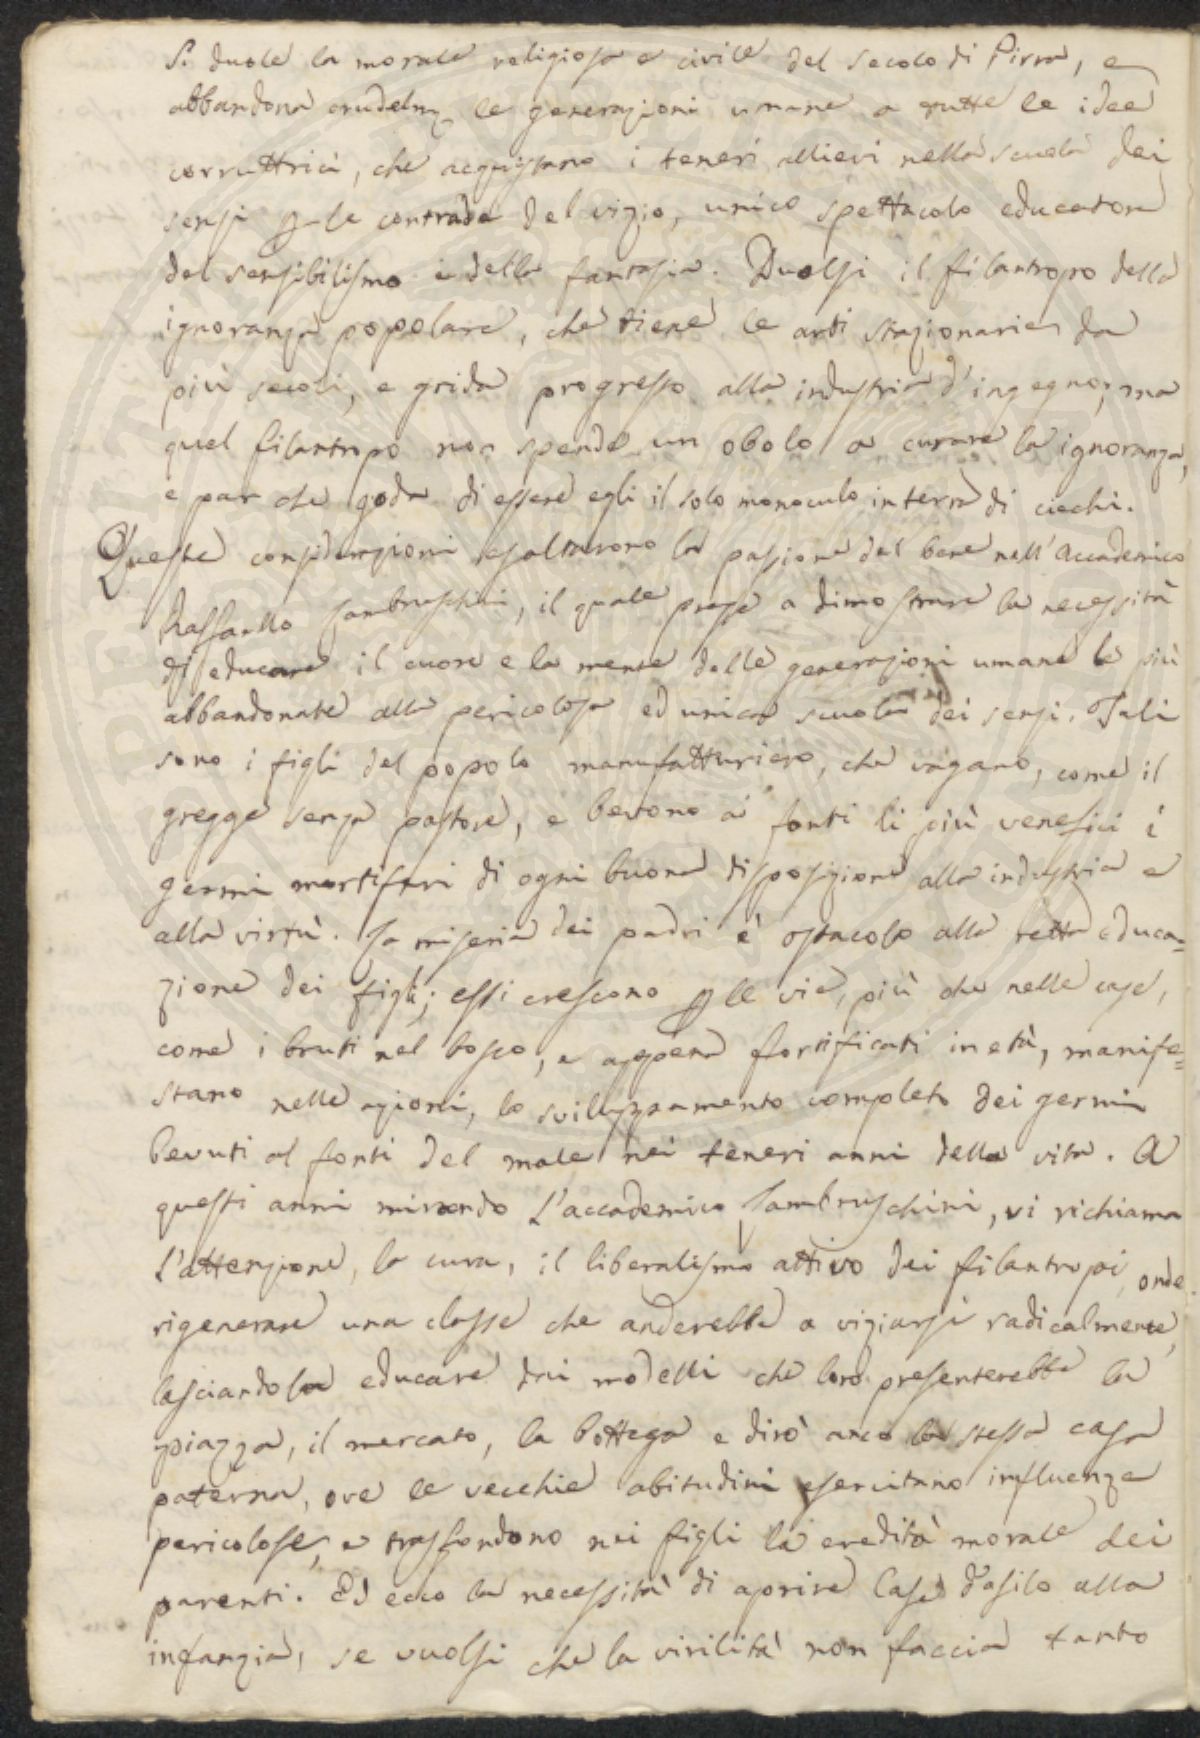 Si duole la morale religiosa e civile del secolo di Pirra, e
abbandona crudelm. le generazioni umane a tutte le idee
corruttrici, che acquistano i teneri allievi nella scuola dei
sensi p. le contrade del vizio, unico spettacolo educatore
del sensibilismo e della fantasia. Duolsi il filantropo della
ignoranza popolare, che tiene le arti stazionarie da
più secoli, e grida progresso alla industria d'ingegno; ma
quel filantropo non spende un obolo a curare la ignoranza,
e par che goda di essere egli il solo monoculo in terra di ciechi.
Queste considerazioni esaltarono la passione del bene nell'Accademico
Raffaello Lambruschini, il quale prese a dimostrare la necessità
di educare il cuore e la mente delle generazioni umane le più
abbandonate alla pericolosa ed unica scuola dei sensi. Tali
sono i figli del popolo manufatturiero, che vagano, come il
gregge senza pastore, e bevono ai fonti li più venefici i
germi mortiferi di ogni buona disposizione alla industria e
alla virtù. La miseria dei padri è ostacolo alla retta educa=
zione dei figli; essi crescono p le vie, più che nelle case,
come i bruti nel bosco, e appena fortificati in età, manife=
stano nelle azioni, lo sviluppamento completo dei germi
bevuti al fonti del male nei teneri anni della vita. A
questi anni mirando l'accademico Lambruschini, vi richiama
l'attenzione, la cura, il liberalismo attivo dei filantropi, onde
rigenerare una classe che anderebbe a viziarsi radicalmente,
lasciandola educare dai modelli che loro presenterebbe la
piazza, il mercato, la bottega e dirò anco la stessa casa
paterna, ove le vecchie abitudini esercitano influenze
pericolose, e trasfondono nei figli la eredità morale dei
parenti. Ed ecco la necessità di aprire Case d'asilo alla
infanzia, se vuolsi che la virilità non faccia tanto